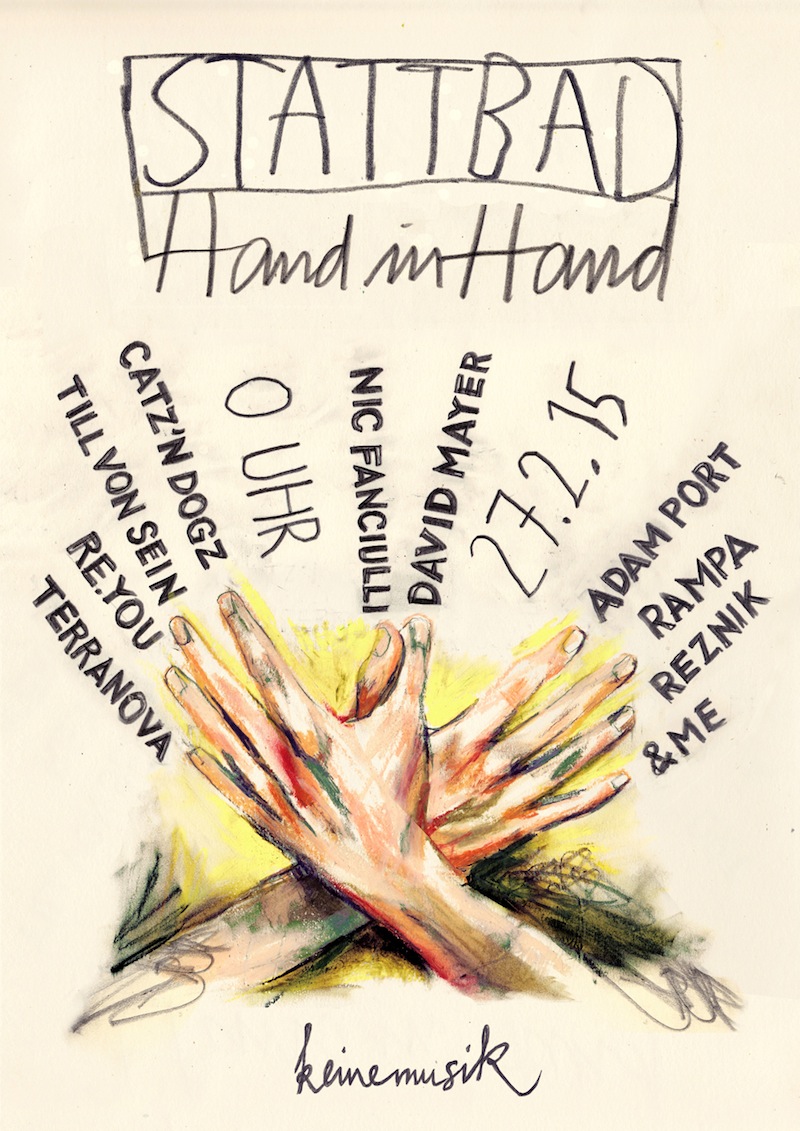 STATTBAD
Hand in Hand
CATZ'N DOGZ
TILL VON SEIN
RE.YOU
TERRANOVA
0 UHR
NIC FANCIULLI
DAVID MAYER
27.2.15
ADAM PORT
RAMPA
REZNIK
&ME
keinemusik